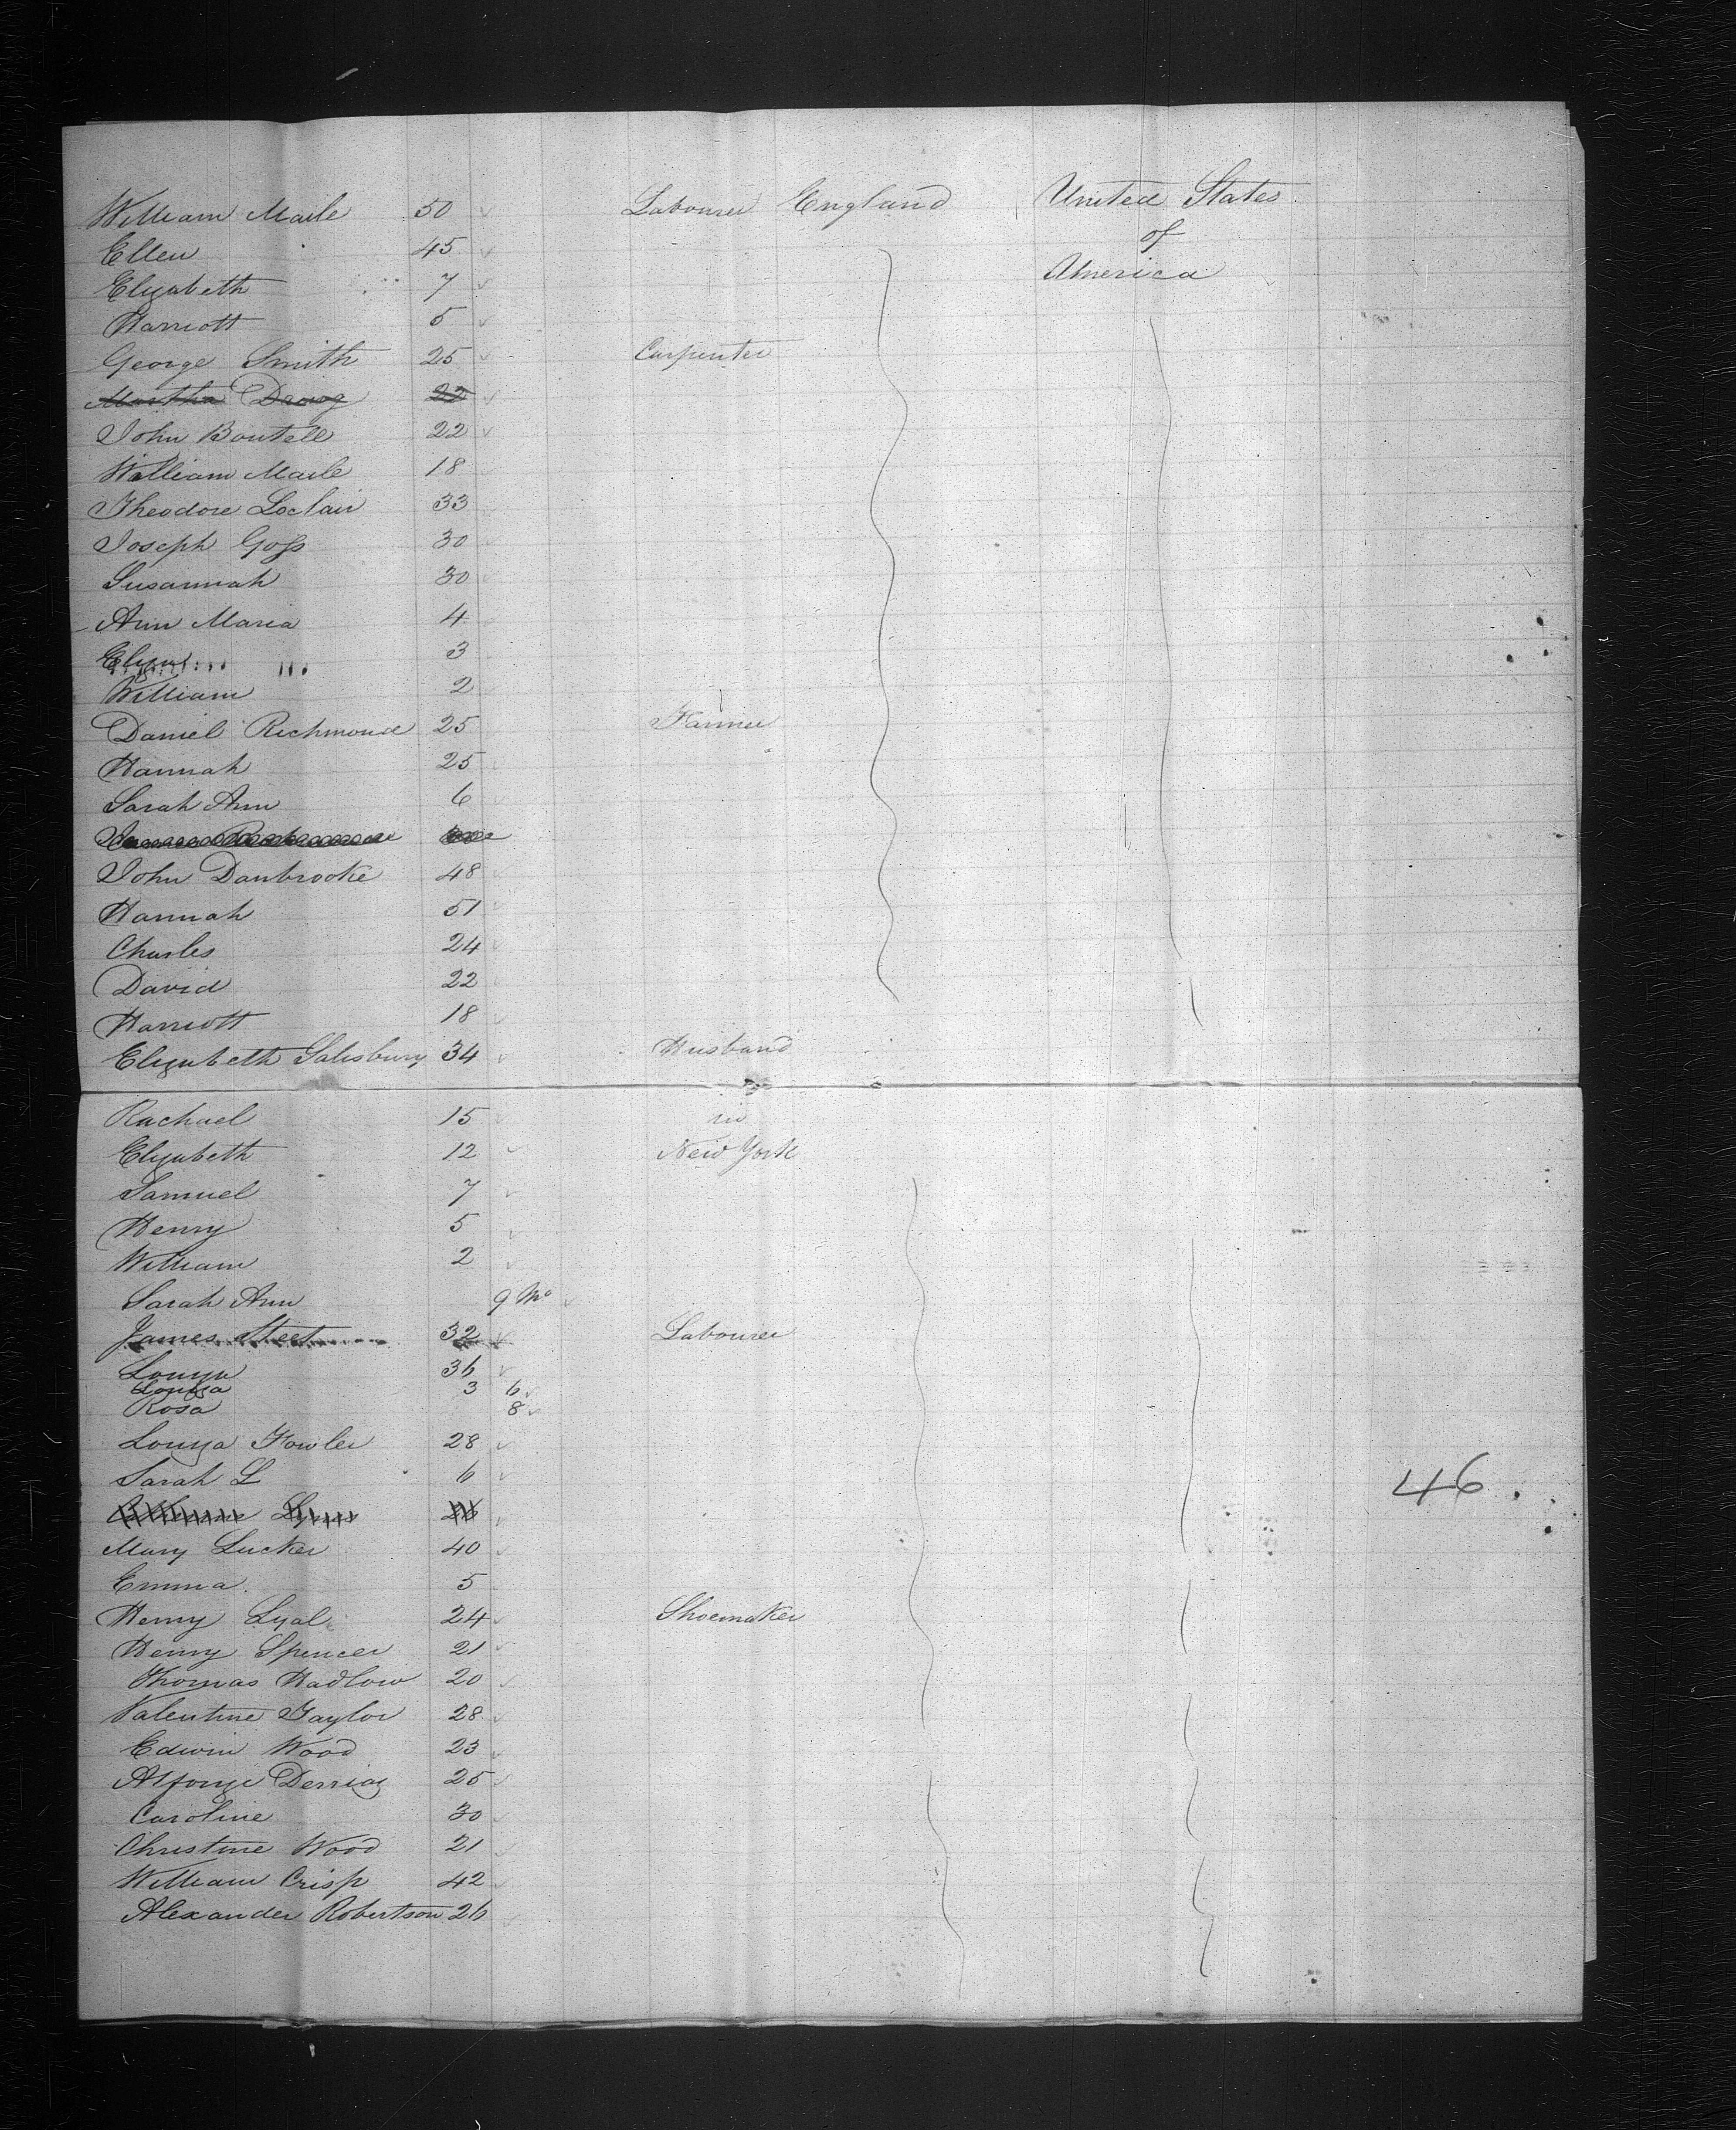 William Maile 50 Labourer England United States
Ellen 45 of
Elizabeth 7 America
Harriott 5
George Smith 25 Carpenter
Martha 22
John Boutell 22
William Maile 18
Theodore Loclair 33
Joseph Goss 30
Susannah 30
Ann Maria 4
Eliza 3
William 2
Daniel Richmond 25 Farmer
Hannah 25
Sarah Ann 6
John Danbrooke 48
Hannah 51
Charles 24
David 22
Harriott 18
Elizabeth Salisbury 34 Husband
Rachael 15 in
Elizabeth 12 New York
Samuel 7
Henry 5
William 2
Sarah Ann 9 Mo
James Steet 32 Labourer
Louiza 36
Louiza 3 6
Rosa 8
Louiza Fowler 28
Sarah L 6
46
Mary Tucker 40
Emma 5
Henry Lyal 24 Shoemaker
Henry Spencer 21
Thomas Hadlow 20
Valentine Taylor 28
Edwin Wood 23
Alfonze 25
Caroline 30
Christine Wood 21
William Crisp 42
Alexander Robertson 26